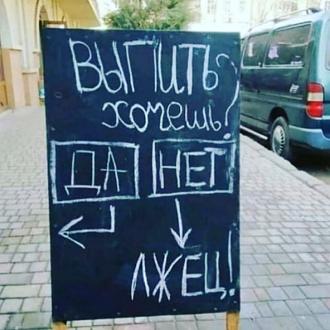 ВЫПИТЬ
хочешь?
ДА НЕТ
ЛЖЕЦ!